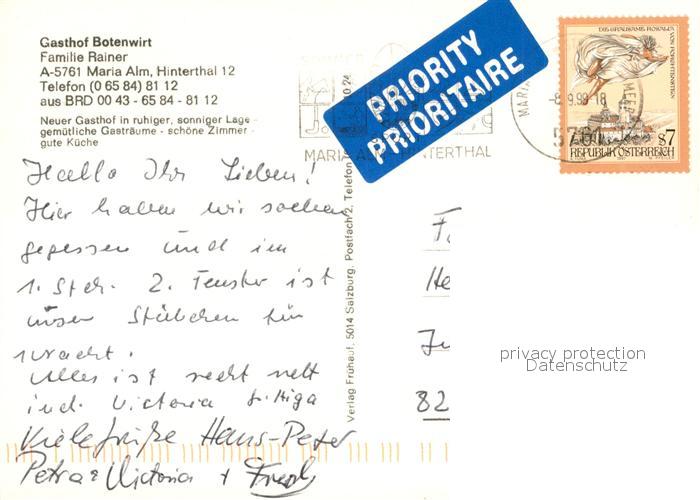 Gasthof Botenwirt
Familie Rainer
A-5761 Maria Alm, Hinterthal 12
Telefon (0 65 84) 81 12
aus BRD 00 43 - 65 84 - 81 12
Neuer Gasthof in ruhiger, sonniger Lage -
gemütliche Gasträume - schöne Zimmer -
gute Küche
PRIORITY
PRIORITAIRE
MARIA ALM HINTERTHAL
DIE GRAUSAME ROSALIA VON FORCHTENSTEIN
-8.9.98-18
5761
s7
REPUBLIK ÖSTERREICH
Hallo Ihr Lieben!
Hier haben wir soeben
gegessen und im
1. Stck. 2. Fenster ist
unser Stübchen für
1 Nacht.
Alles ist recht nett
incl. Victoria
Viele Grüße Hans-Peter
Petra & Victoria +
Verlag Frühauf, 5014 Salzburg, Postfach 2, Telefon
F.
He
Ju
82
privacy protection
Datenschutz